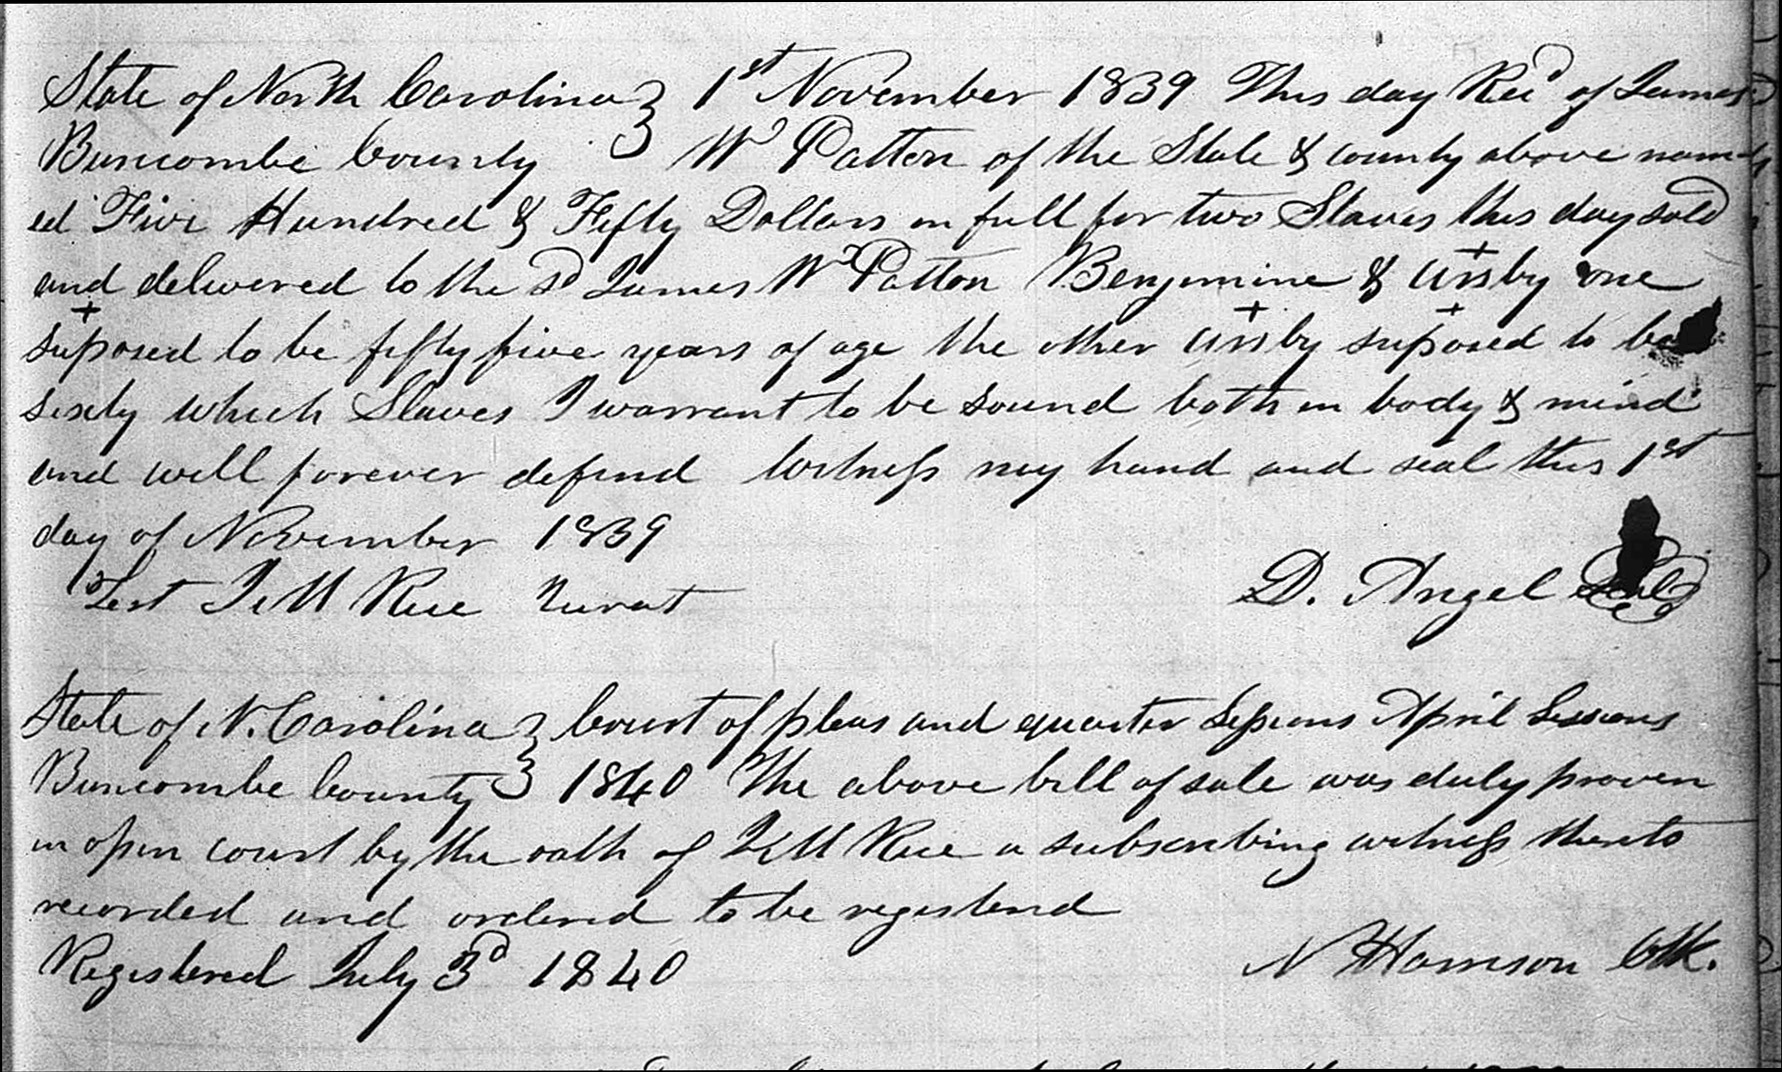 State of North Carolina } 1st November 1839 This day Recd of James
Buncombe County } W Patton of the State & county above nam-
ed Five Hundred & Fifty Dollars in full for two Slaves this day sold
and delivered to the sd James W Patton Benjimine & one
suposed to be fifty five years of age the other suposed to be
sixty which Slaves I warrant to be sound both in body & mind
and will forever defend Witness my hand and seal this 1st
day of November 1839
Test Rice D. Angel Seal
State of N. Carolina } Court of pleas and quarter Sessions April Sessions
Buncombe County } 1840 The above bill of sale was duly proven
in open court by the oath of Rice a subscribing witness thereto
recorded and ordered to be registered
Registered July 3d 1840 N Harrison Clk.